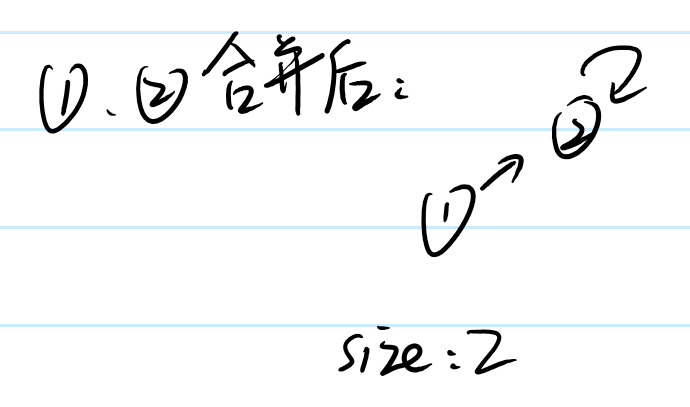 ①、②合并后：
②
①→
size：2